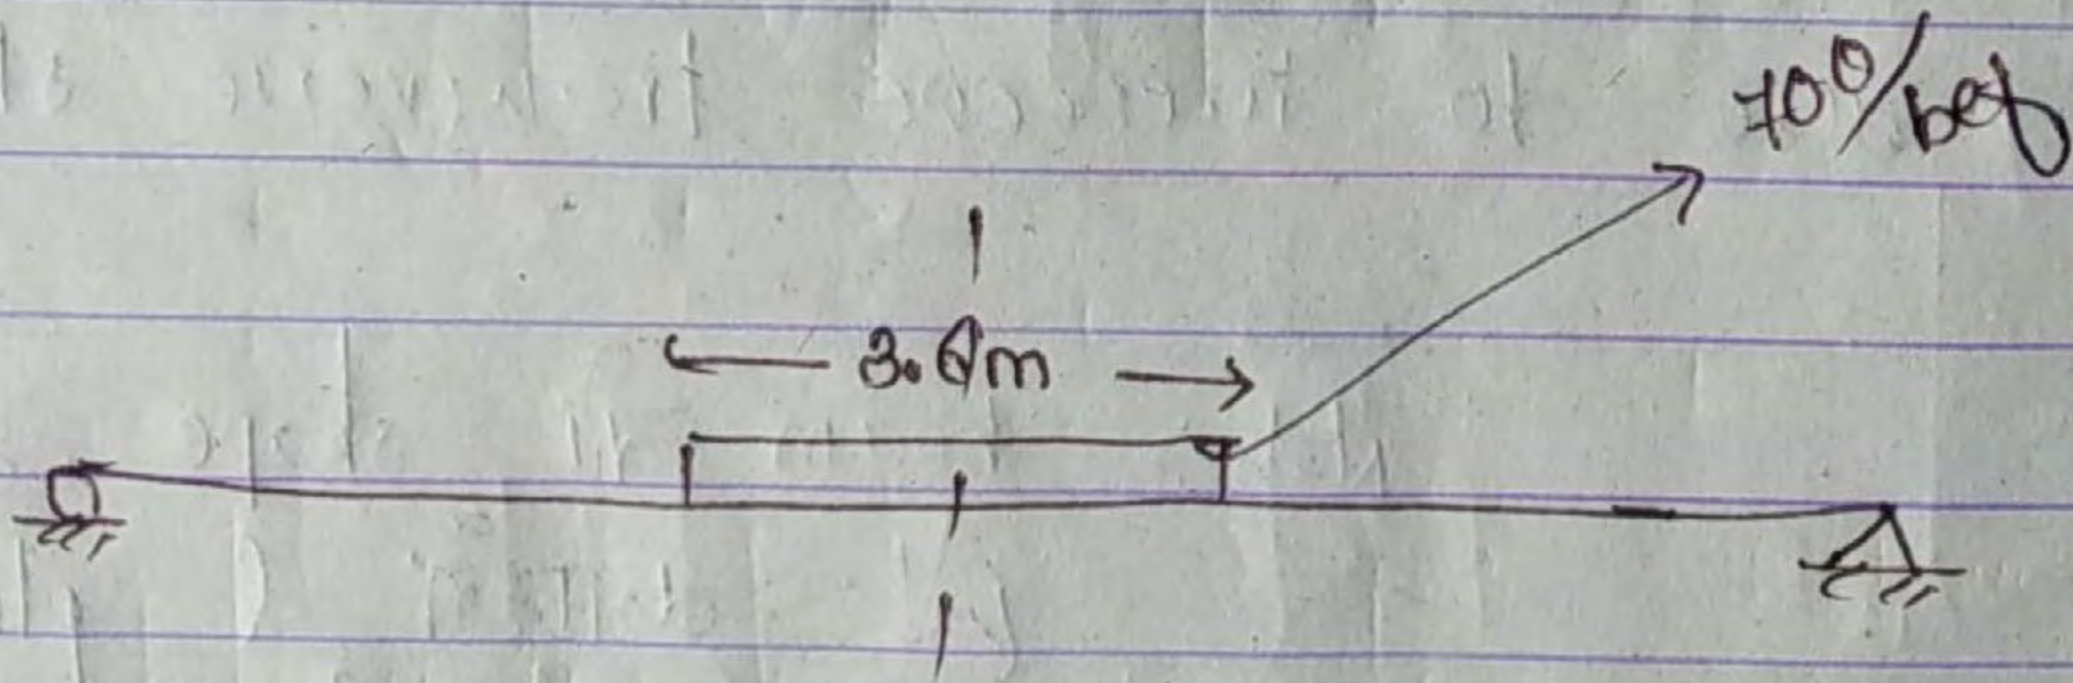 700/bef
3.6m